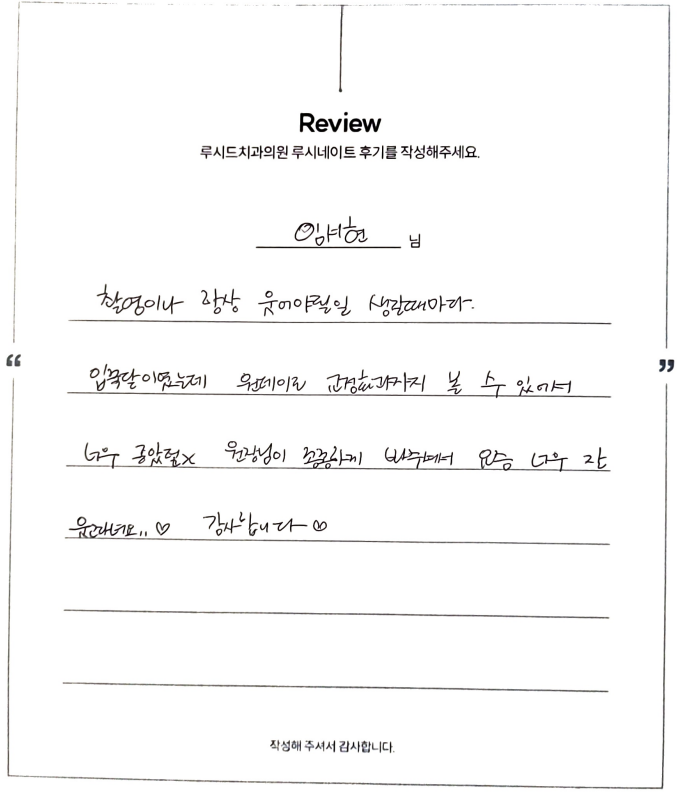 Review
루시드치과의원 루시네이트 후기를 작성해주세요.
임서현 님
촬영이나 항상 웃어야될일 생길때마다.
“ ”
입꾹닫이였는데 원데이로 교정효과까지 볼 수 있어서
너무 좋았
원장님이 꼼꼼하게 봐주셔서 요즘 너무 잘
웃고다녀요.. ♡ 감사합니다 ♡
작성해 주셔서 감사합니다.